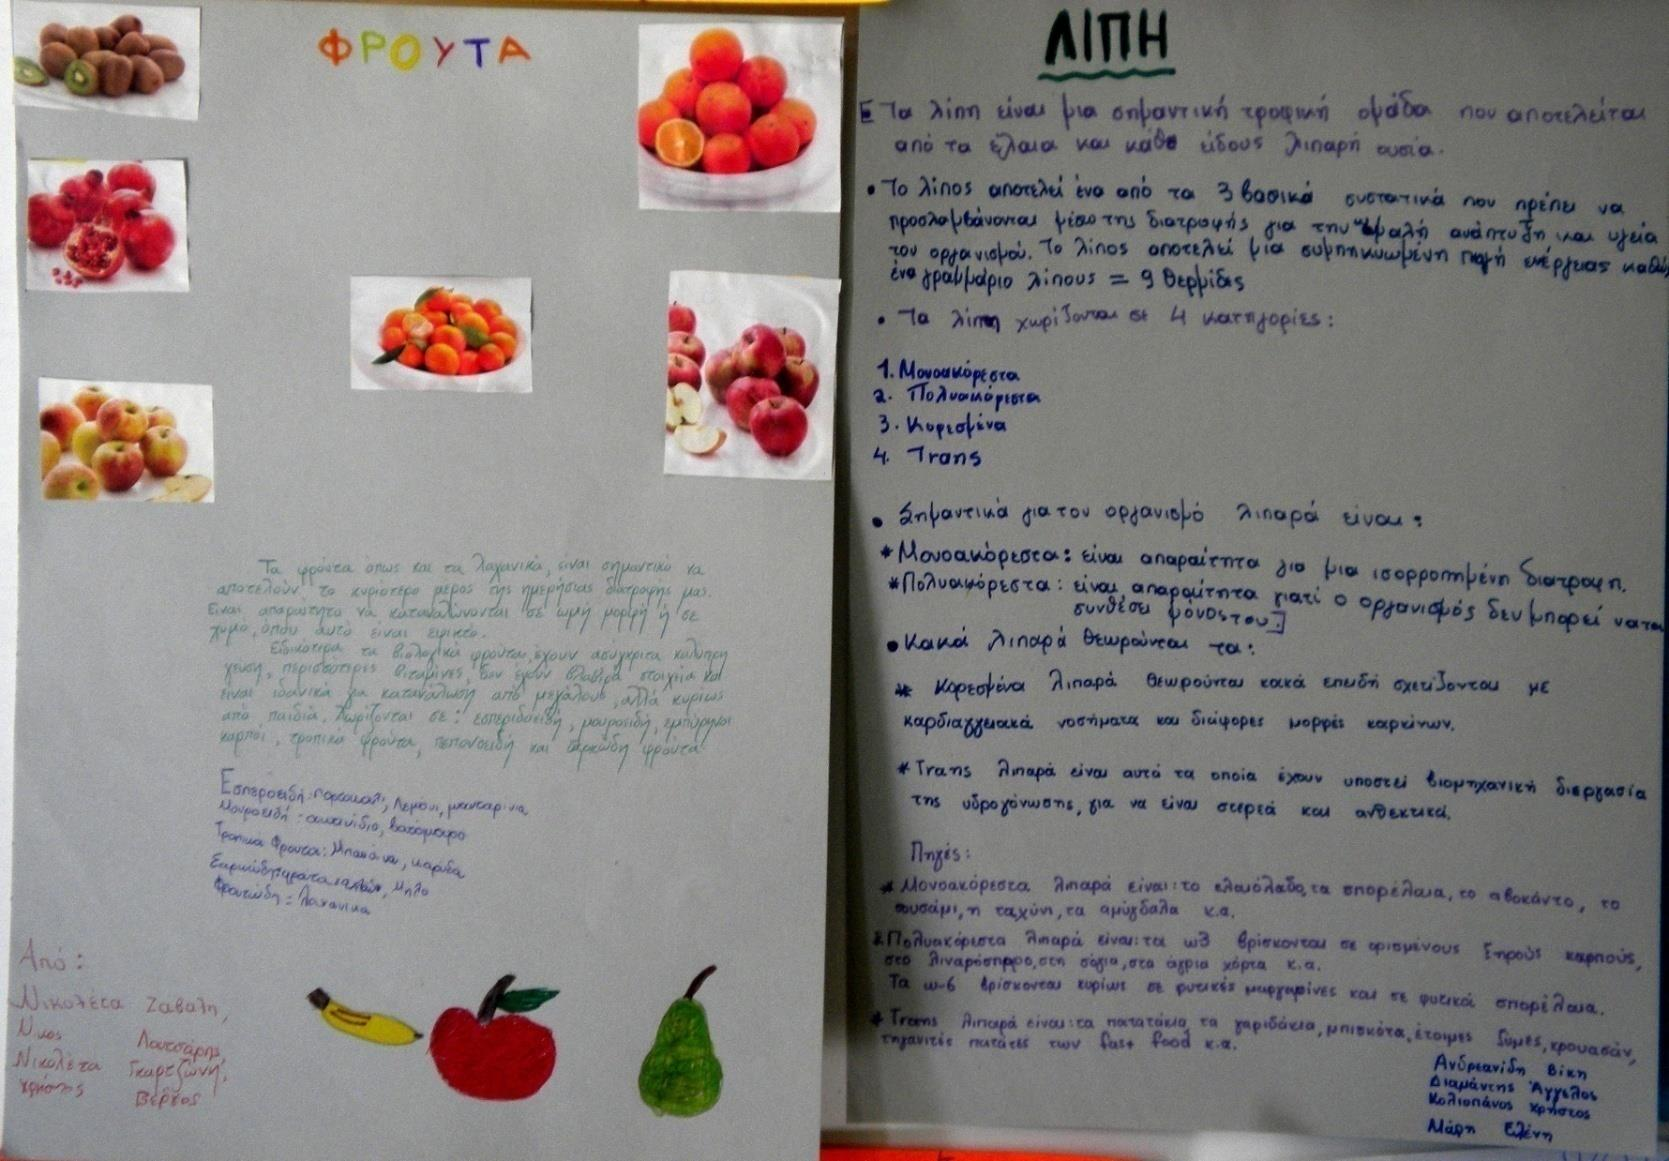 ΦΡΟΥΤΑ
Τα φρούτα όπως και τα λαχανικά, είναι σημαντικό να
αποτελούν το κυριότερο μέρος της ημερήσιας διατροφής μας.
Είναι απαραίτητο να καταναλώνονται σε ωμή μορφή ή σε
χυμό, όπου αυτό είναι εφικτό.
Ειδικότερα τα βιολογικά φρούτα, έχουν ασύγκριτα καλύτερη
γεύση, περισσότερες βιταμίνες, δεν έχουν βλαβερά στοιχεία και
είναι ιδανικά για κατανάλωση από μεγάλους, αλλά κυρίως
από παιδιά. Χωρίζονται σε: εσπεριδοειδή, μουροειδή, εμπύρηνοι
καρποί, τροπικά φρούτα, πεπονοειδή και σαρκώδη φρούτα
Εσπεροειδή: πορτοκαλι, Λεμόνι, μανταρίνια
Μουροειδή: ακτινίδιο, βατόμουρο
Τροπικα Φρουτα: Μπανάνα, καρύδα
Σαρκώδη φρουτα: Μήλο
Φρουτώδη: Λαχανικα
Από:
Νικολέτα Ζαβαλη,
Νικος Λαυτσάρης,
Νικολέτα Γκαρτζώνη,
Χρήστος Βέργος
ΛΙΠΗ
Τα λίπη είναι μια σημαντική τροφική ομάδα που αποτελείται
από τα έλαια και κάθε είδους λιπαρή ουσία.
• Το λίπος αποτελεί ένα από τα 3 βασικά συστατικά που πρέπει να
προσλαμβάνονται μέσο της διατροφής για την ομαλή ανάπτυξη και υγεία
του οργανισμού. Το λίπος αποτελεί μια συμπηκνωμένη πηγή ενέργειας καθώς
ένα γραμμάριο λίπους = 9 θερμίδες
• Τα λίπη χωρίζονται σε 4 κατηγορίες:
1. Μονοακόρεστα
2. Πολυακόρεστα
3. Κορεσμένα
4. Trans
• Σημαντικά για τον οργανισμό λιπαρά είναι:
* Μονοακόρεστα: είναι απαραίτητα για μια ισορροπημένη διατροφη.
* Πολυακόρεστα: είναι απαραίτητα γιατί ο οργανισμός δεν μπορεί να τα
συνθέσει μόνος του.]
• Κακά λιπαρά θεωρούνται τα:
* Κορεσμένα λιπαρά θεωρούνται κακά επειδή σχετίζονται με
καρδιαγγειακά νοσήματα και διάφορες μορφές καρκίνων.
* Trans λιπαρά είναι αυτά τα οποία έχουν υποστεί βιομηχανική διεργασία
της υδρογόνωσης, για να είναι στερεά και ανθεκτικά.
Πηγές:
* Μονοακόρεστα λιπαρά είναι: το ελαιόλαδο, τα σπορέλαια, το αβοκάντο, το
σουσάμι, η ταχύνι, τα αμύγδαλα κ.α.
* Πολυακόρεστα λιπαρά είναι: τα ω3 βρίσκονται σε ορισμένους ξηρούς καρπούς,
στο λιναρόσπορο, στη σόγια, στα άγρια χόρτα κ.α.
Τα ω-6 βρίσκονται κυρίως σε φυτικές μαργαρίνες και σε φυτικά σπορέλαια.
* Trans λιπαρά είναι: τα πατατάκια, τα γαριδάκια, μπισκότα, έτοιμες ζύμες, κρουασάν,
τηγανιτές πατάτες των fast food κ.α.
Ανδρεανίδη Βίκη
Διαμάντης Άγγελος
Κολιοπάνος Χρήστος
Μάρη Ελένη